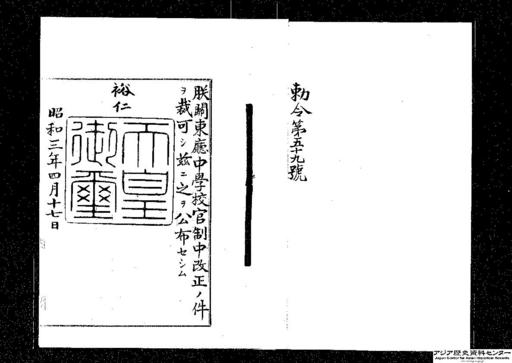 勅令第五十九號
朕關東廳中學校官制中改正ノ件
ヲ裁可シ玆ニ之ヲ公布セシム
裕仁
天皇
御璽
昭和三年四月十七日
アジア歴史資料センター
Japan Center for Asian Historical Records